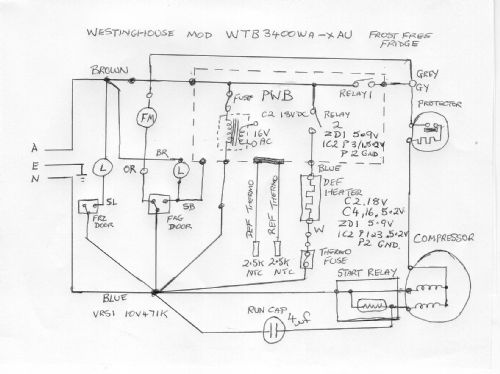 WESTINGHOUSE MOD WTB3400WA-XAU FROST FREE
FRIDGE
BROWN
GREY
GY
PROTECTOR
FUSE
PWB
RELAY 1
C2 18VDC
16V
AC
RELAY
2
ZD1 5.9V
IC2 P3/1 5.2V
P2 GND
FM
A
E
N
L
BR
L
OR
SL
SB
FRZ
DOOR
FAG
DOOR
DEF THERMO
REF THERMO
2.5K
NTC
2.5K
NTC
BLUE
DEF
HEATER
W
THERMO
FUSE
C2, 18V
C4, 16, 5.2V
ZD1 5.9V
IC2 P1 & 3, 5.2V
P2 GND.
COMPRESSOR
START RELAY
BLUE
VRS1 10V471K
RUN CAP
4uf